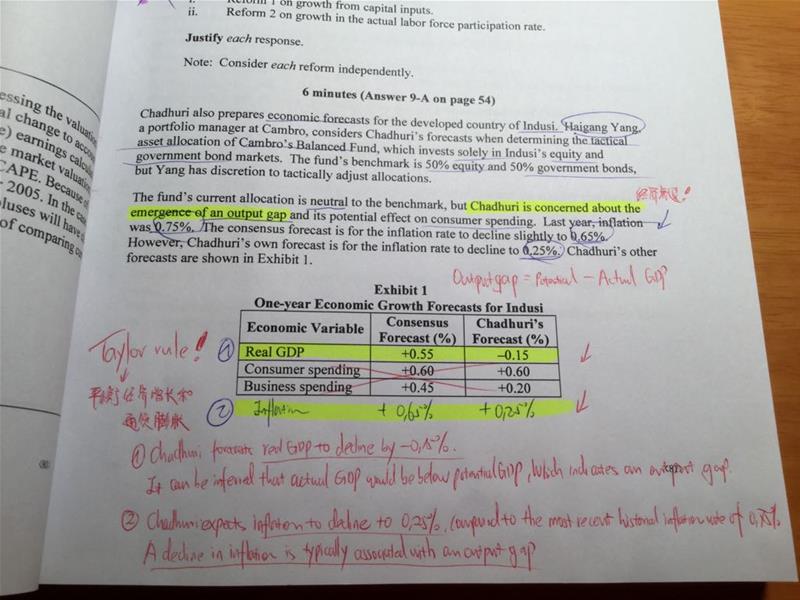 Reform 1 on growth from capital inputs.
ii. Reform 2 on growth in the actual labor force participation rate.
Justify each response.
Note: Consider each reform independently.
6 minutes (Answer 9-A on page 54)
Chadhuri also prepares economic forecasts for the developed country of Indusi. Haigang Yang,
a portfolio manager at Cambro, considers Chadhuri's forecasts when determining the tactical
asset allocation of Cambro's Balanced Fund, which invests solely in Indusi's equity and
government bond markets. The fund's benchmark is 50% equity and 50% government bonds,
but Yang has discretion to tactically adjust allocations.
The fund's current allocation is neutral to the benchmark, but Chadhuri is concerned about the
emergence of an output gap and its potential effect on consumer spending. Last year, inflation
was 0.75%. The consensus forecast is for the inflation rate to decline slightly to 0.65%.
However, Chadhuri's own forecast is for the inflation rate to decline to 0.25%. Chadhuri's other
forecasts are shown in Exhibit 1.
Output gap = Potential - Actual GDP
Exhibit 1
One-year Economic Growth Forecasts for Indusi
Economic Variable Consensus Forecast (%) Chadhuri's Forecast (%)
① Real GDP +0.55 –0.15
Consumer spending +0.60 +0.60
Business spending +0.45 +0.20
② Inflation +0.65% +0.25%
Taylor rule!
平衡经济增长和
通货膨胀
① Chadhuri forecasts real GDP to decline by -0.15%.
It can be inferred that actual GDP would be below potential GDP, which indicates an output gap.
② Chadhuri expects inflation to decline to 0.25%, compared to the most recent historical inflation rate of 0.75%
A decline in inflation is typically associated with an output gap
essing the valuation
al change to acco
e) earnings calcu
e market valuation
CAPE. Because of
r 2005. In the ca
pluses will have s
of comparing co